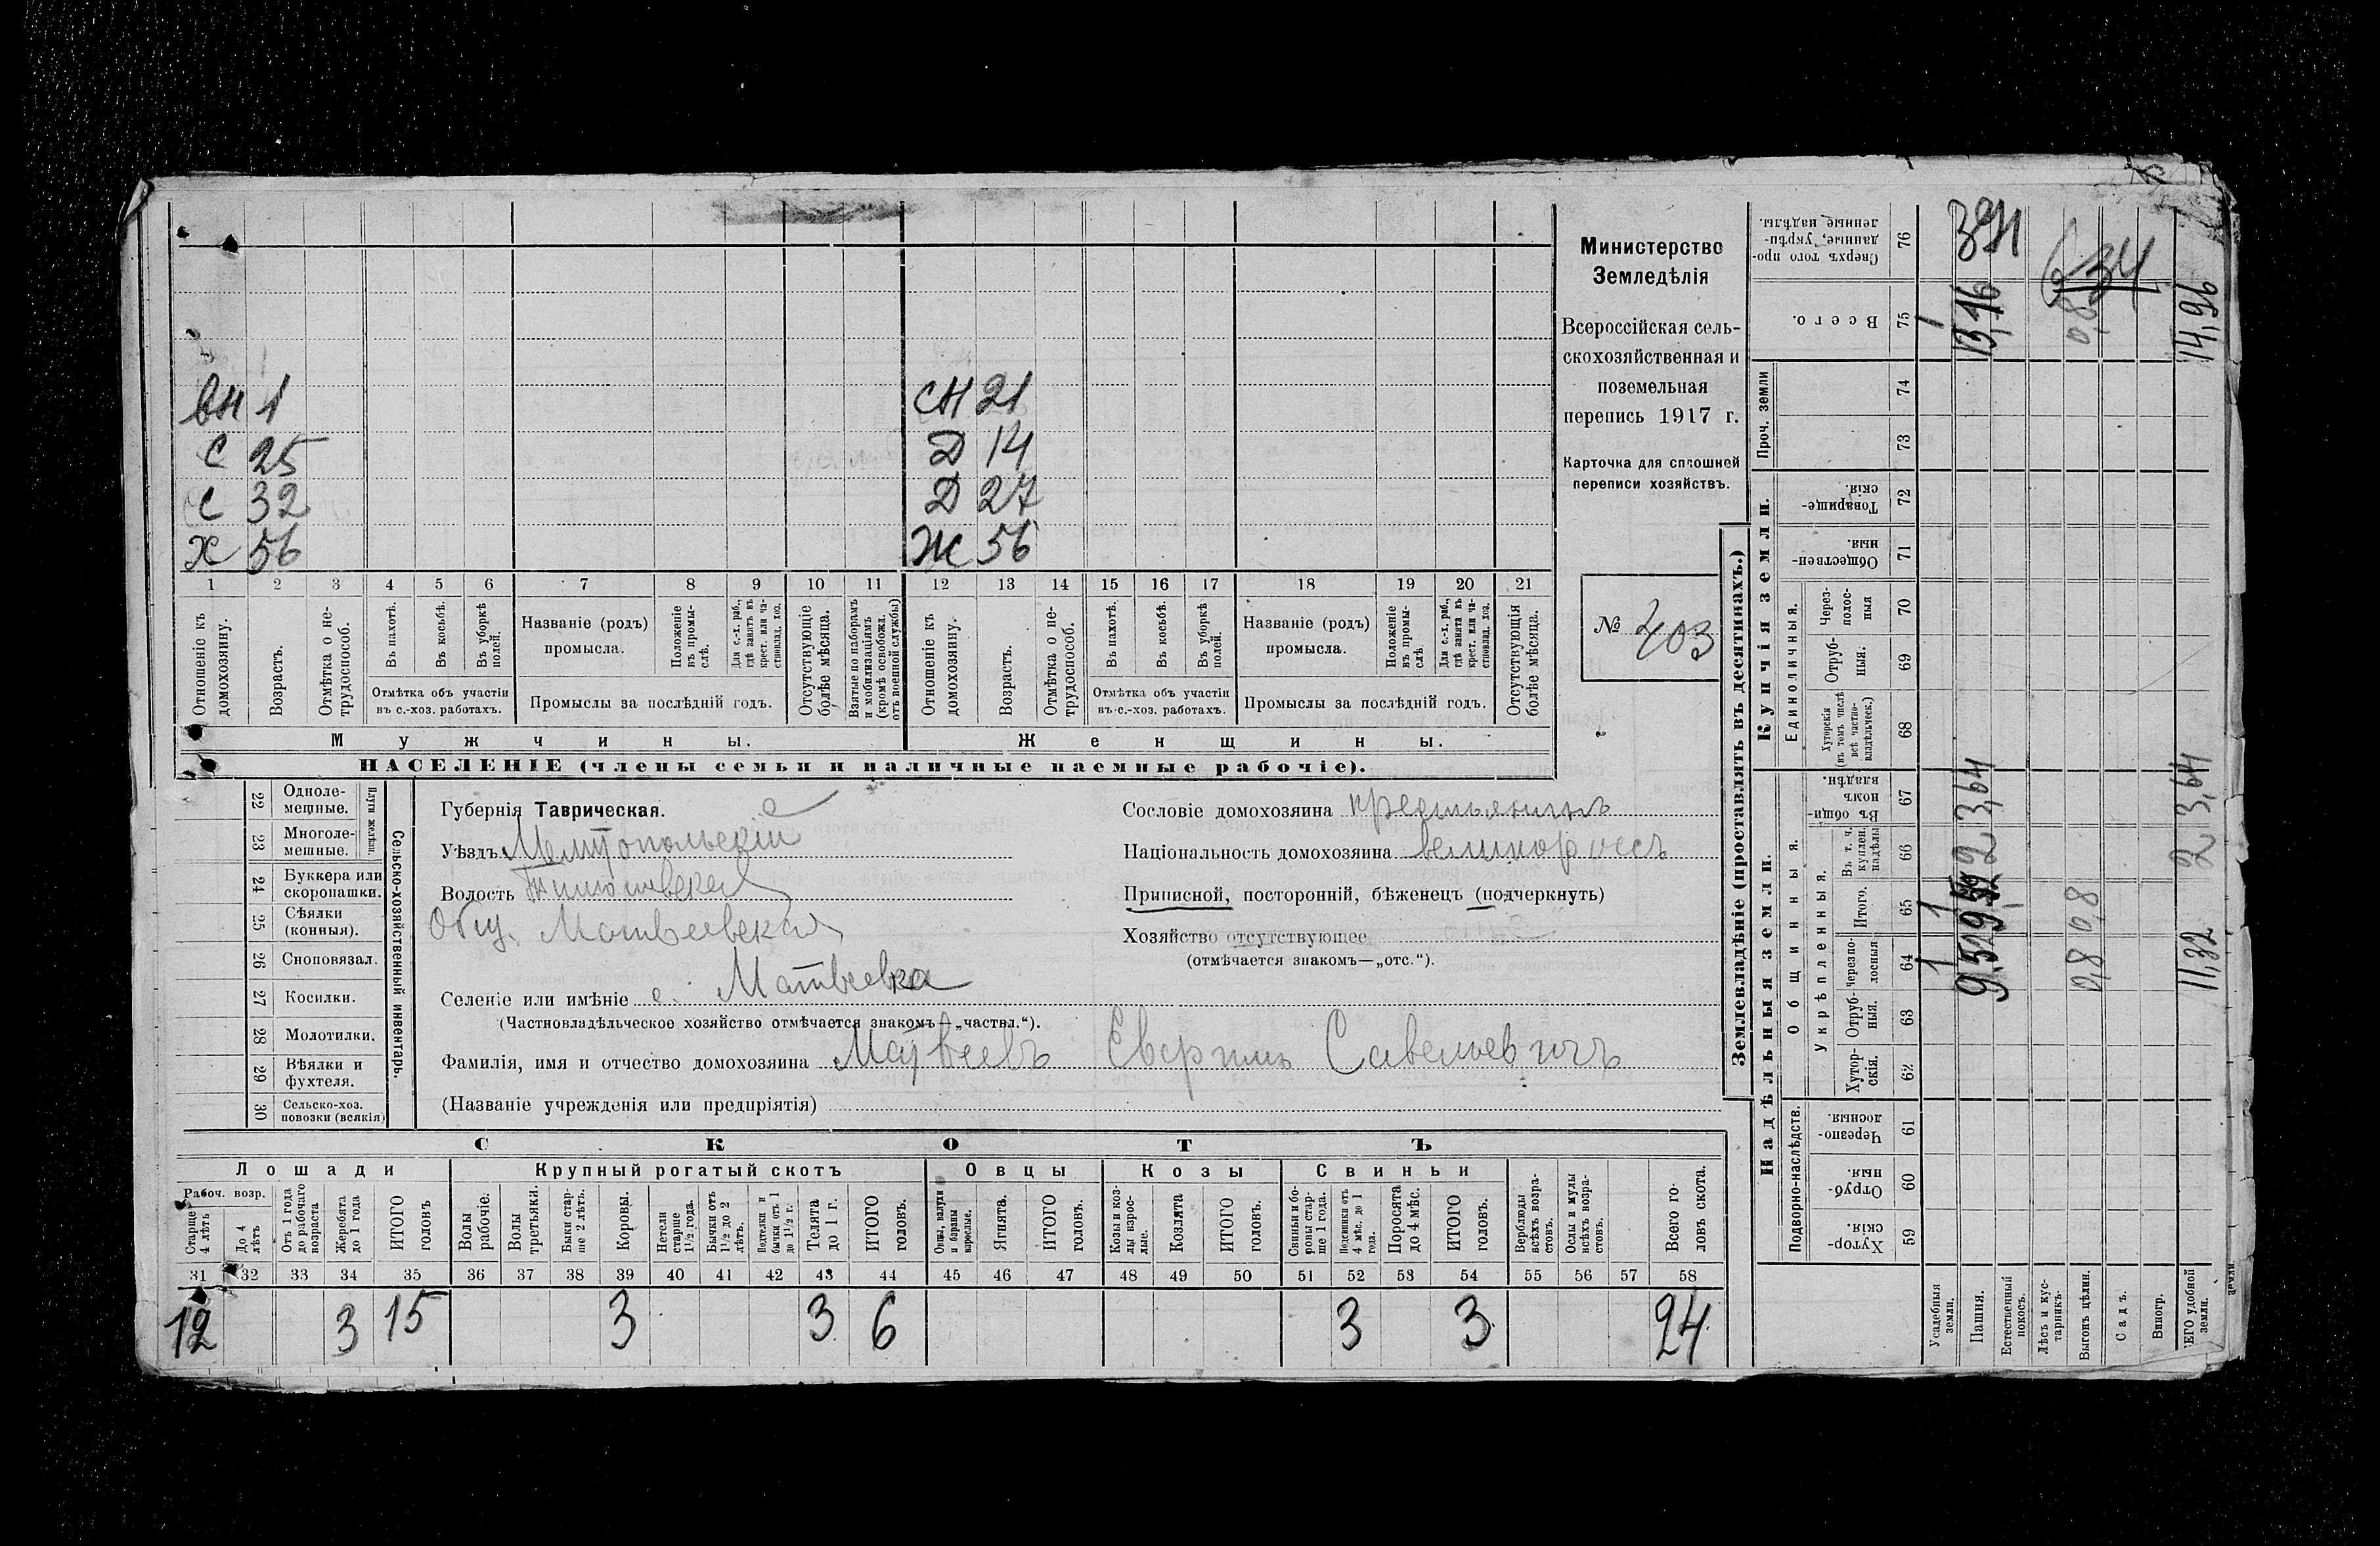 вн 1
с 25
с 32
х 56
сн 21
Д 14
Д 27
Ж 56
1 2 3 4 5 6 7 8 9 10 11 12 13 14 15 16 17 18 19 20 21
Отношеніе къ домохозяину.
Возрастъ.
Отмѣтка о не-
трудоспособ.
Въ пахотѣ.
Въ косьбѣ.
Въ уборкѣ полей.
Отмѣтка объ участіи
въ с.-хоз. работахъ.
Названіе (родъ)
промысла.
Положеніе
въ промы-
слѣ.
Для с.-х. раб.,
гдѣ занятъ въ
крест. или ча-
стновлад. хоз.
Промыслы за послѣдній годъ.
Отсутствующіе
болѣе мѣсяца.
Взятые по наборамъ
и мобилизаціямъ
(кромѣ освобожд.
отъ военной службы)
Отношеніе къ
домохозяину.
Возрастъ.
Отмѣтка о не-
трудоспособ.
Въ пахотѣ.
Въ косьбѣ.
Въ уборкѣ
полей.
Отмѣтка объ участіи
въ с.-хоз. работахъ.
Названіе (родъ)
промысла.
Положеніе
въ промы-
слѣ.
Для с.-х. раб.,
гдѣ занята въ
крест. или ча-
стновлад. хоз.
Промыслы за послѣдній годъ.
Отсутствующія
болѣе мѣсяца.
Мужчины.
Женщины.
НАСЕЛЕНІЕ (члены семьи и наличные наемные рабочіе).
Министерство
Земледѣлія
Всероссійская сель-
скохозяйственная и
поземельная
перепись 1917 г.
Карточка для сплошной
переписи хозяйствъ.
№ 403
22 Одноле-
мешные.
23 Многоле-
мешные.
Плуги желѣзн.
24 Буккера или
скоропашки.
25 Сѣялки
(конныя).
26 Сноповязал.
27 Косилки.
28 Молотилки.
29 Вѣялки и
фухтеля.
30 Сельско-хоз.
повозки (всякія)
Сельско-хозяйственный инвентарь.
Губернія Таврическая.
Уѣздъ Мелитопольскій
Волость
Общ. Матвеевская
Селеніе или имѣніе с. Матвеевка
(Частновладѣльческое хозяйство отмѣчается знакомъ—„частвл.“).
Фамилія, имя и отчество домохозяина Матвеевъ Евсримъ Савельевичъ
(Названіе учрежденія или предпріятія)
Сословіе домохозяина крестьянинъ
Національность домохозяина великороссъ
Приписной, посторонній, бѣженецъ (подчеркнуть)
Хозяйство отсутствующее
(отмѣчается знакомъ—„отс.“).
СКОТЪ
Лошади
Крупный рогатый скотъ
Овцы
Козы
Свиньи
Рабоч. возр.
Старше
4 лѣтъ
До 4
лѣтъ
Отъ 1 года
до рабочаго
возраста
Жеребята
до 1 года
ИТОГО
головъ
Волы
рабочіе.
Волы
третьяки.
Быки стар-
ше 2 лѣтъ.
Коровы.
Нетели
старше
1½ года.
Бычки отъ
1½ до 2
лѣтъ.
Подтелки и
бычки отъ 1
до 1½ г.
Телята
до 1 г.
ИТОГО
головъ.
Овцы, валухи
и бараны
взрослые.
Ягнята.
ИТОГО
головъ.
Козы и коз-
лы взрос-
лые.
Козлята
ИТОГО
головъ.
Свиньи и бо-
ровы стар-
ше 1 года.
Подсвинки отъ
4 мѣс. до 1
года.
Поросята
до 4 мѣс.
ИТОГО
головъ.
Верблюды
всѣхъ возра-
стовъ.
Ослы и мулы
всѣхъ возра-
стовъ.
Всего го-
ловъ скота.
31 32 33 34 35 36 37 38 39 40 41 42 43 44 45 46 47 48 49 50 51 52 53 54 55 56 57 58
12 3 15 3 3 6 3 3 24
Землевладѣніе (проставлять въ десятинахъ.)
Надѣльныя земли.
Купчія земли.
Проч. земли
Подворно-наслѣдств.
Общинныя.
Укрѣпленныя.
Единоличныя.
Хутор-
скія.
Отруб-
ныя.
Черезпо-
лосныя.
Хутор-
скія.
Отруб-
ныя.
Черезпо-
лосныя.
Итого.
Въ т. ч.
куплен.
надѣлы
Въ общин-
номъ
владѣн.
Хуторскія
(въ томъ числѣ
всѣ частно-
владѣльческ.)
Отруб-
ныя.
Через-
полос-
ныя
Обществен-
ныя.
Товарище-
скія.
Всего.
Сверхъ того про-
данные, укрѣп-
ленные надѣлы.
59 60 61 62 63 64 65 66 67 68 69 70 71 72 73 74 75 76
Усадебныя
земли.
1 1 1
Пашня.
9,52 9,52 3,64 13,16
Естественный
покосъ.
Лѣсъ и кус-
тарникъ.
Выгонъ цѣлин.
0,8 0,8 0,8
Садъ.
Виногр.
ЕГО удобной
земли.
11,32 3,64 14,96